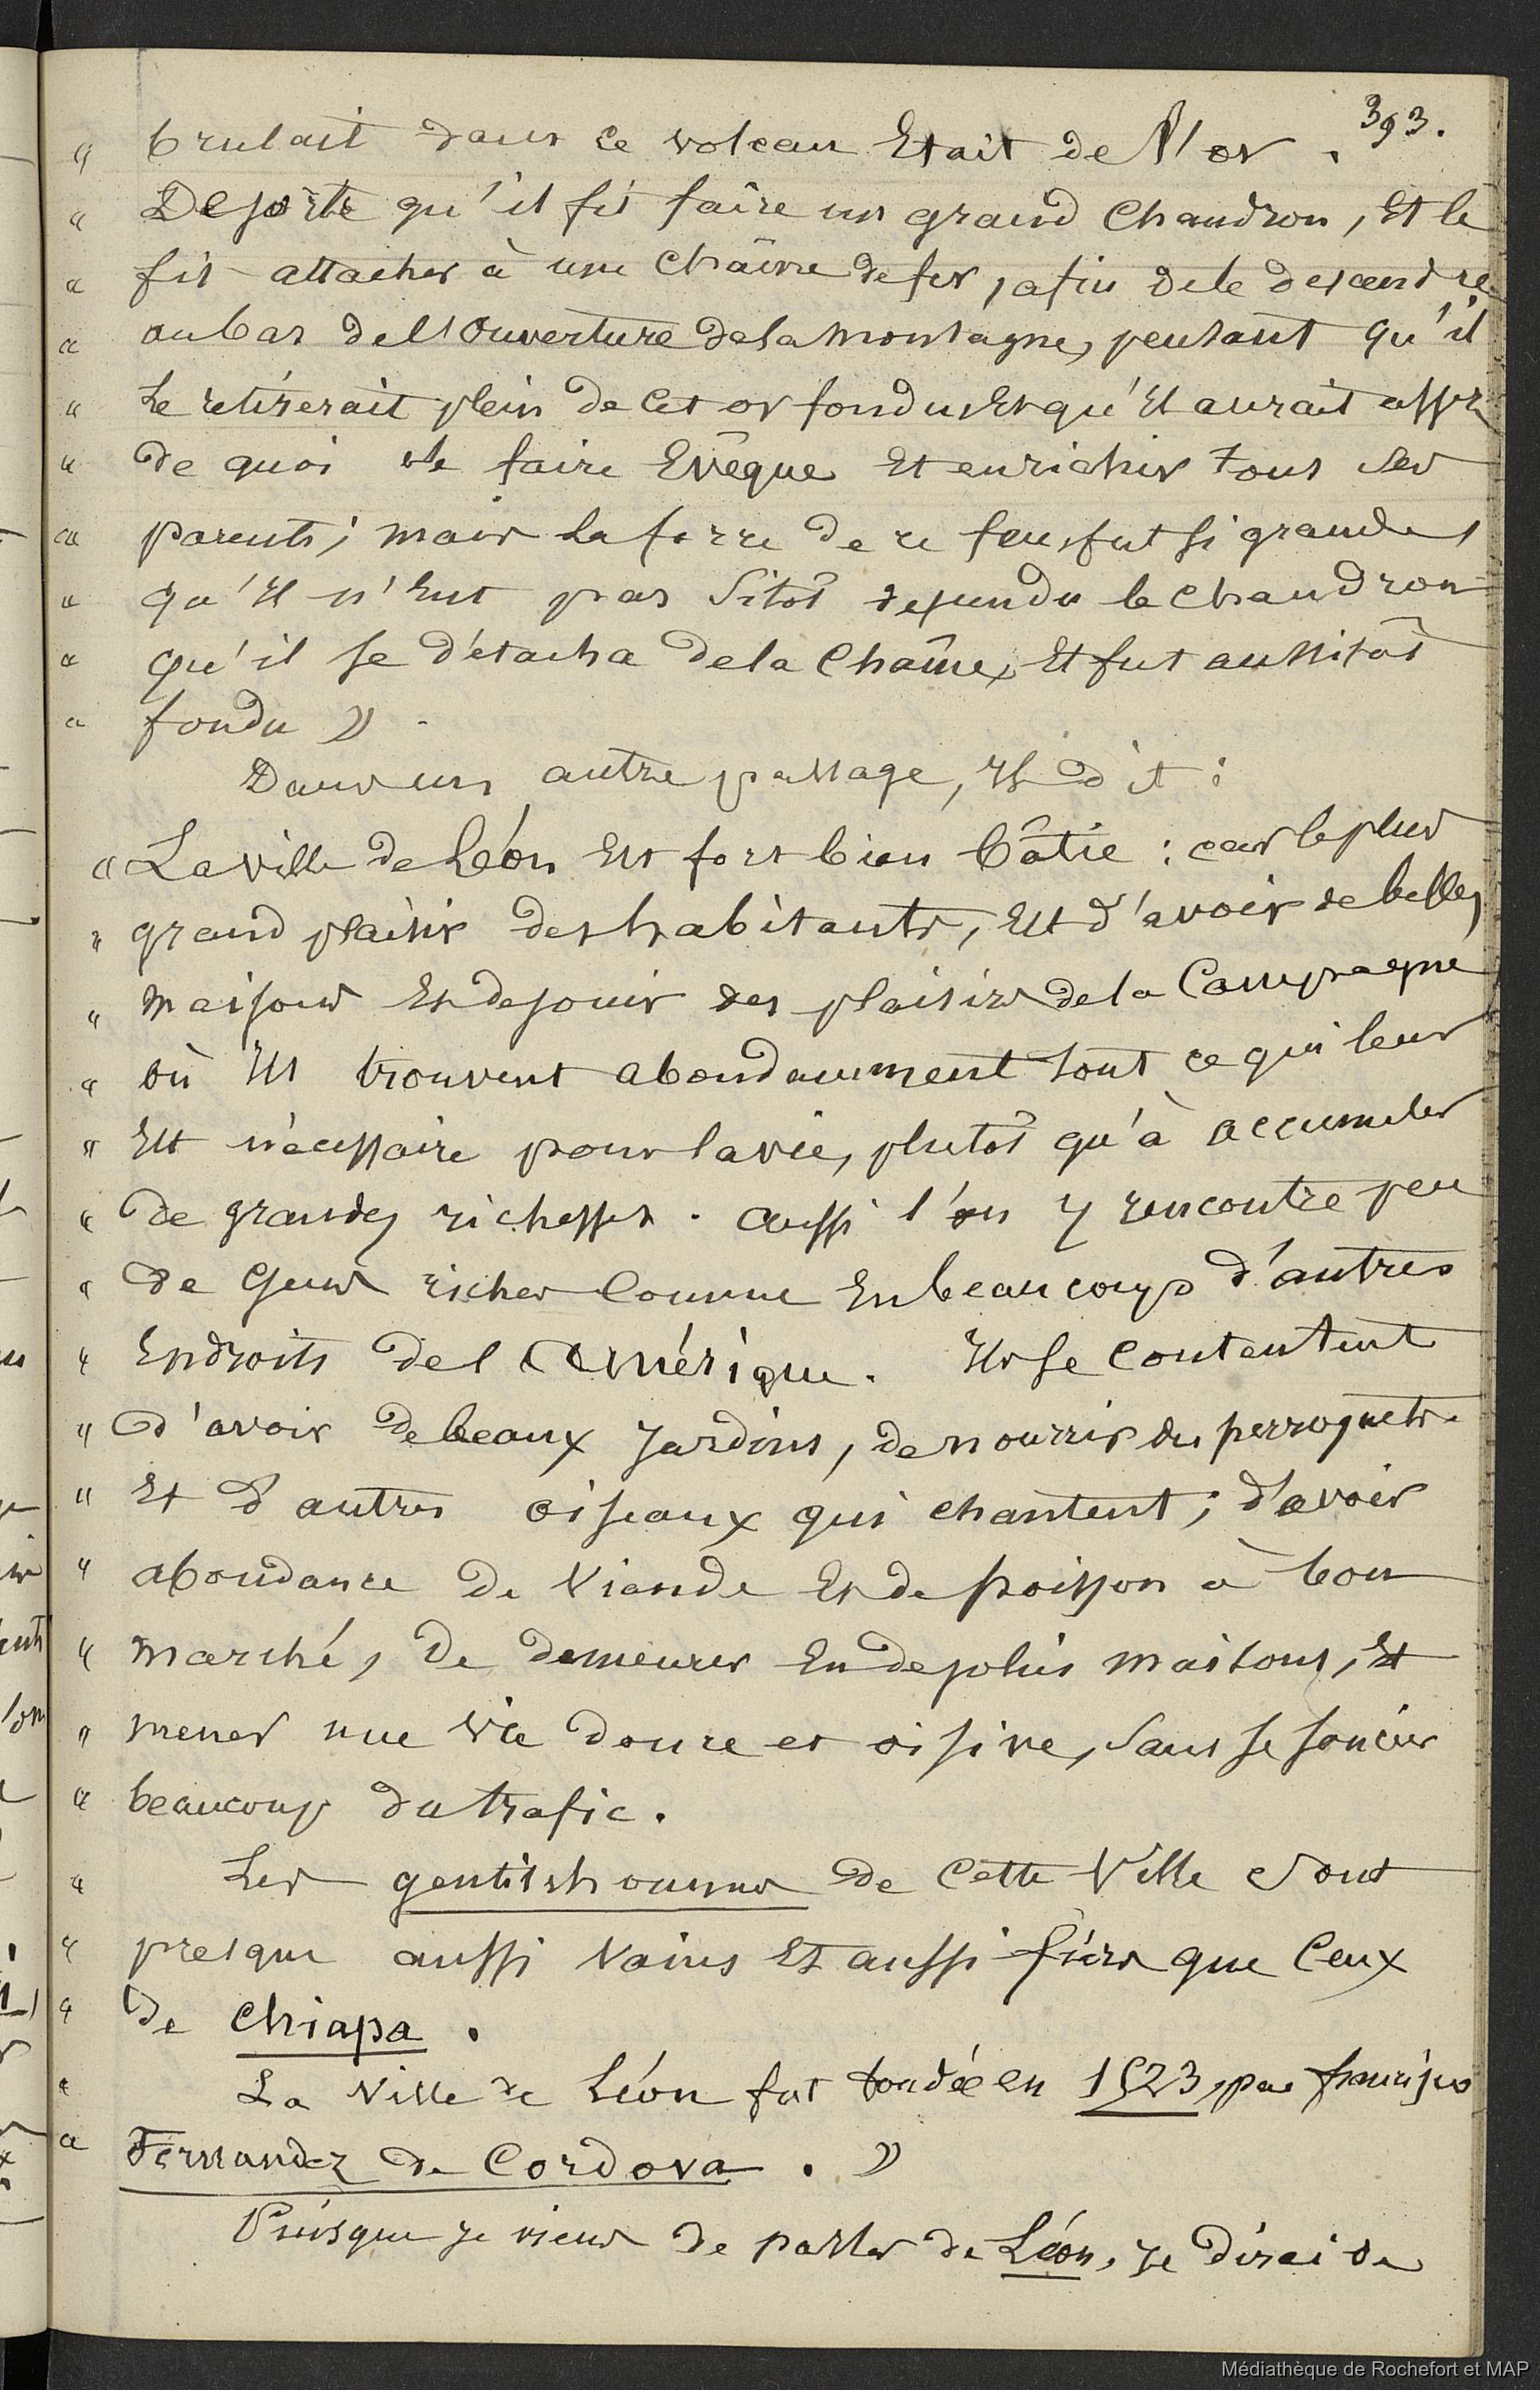 393.
" brulait dans ce volcan Etait de l'or.
" De sorte qu'il fit faire un grand Chaudron, Et le
" fit attacher à une Chaîne de fer, afin de le descendre
" au bas de l'Ouverture de la montagne, pensant qu'il
" Le retirerait plein de cet or fondu, Et qu'Il aurait assez
" de quoi se faire Evêque Et enrichir tous ses
" parents; mais la force de ce feu, fut si grande,
" qu'Il n'Eut pas Sitôt descendu le Chaudron
" qu'il se détacha de la Chaîne, Et fut aussitôt
" fondu ».
Dans un autre passage, Il dit:
" La ville de Léon Est fort bien bâtie: car le plus
" grand plaisir des habitants, Est d'avoir de belles
" maisons Et de jouir des plaisirs de la Campagne
" où Ils trouvent abondamment tout ce qui leur
" Est nécessaire pour la vie, plutôt qu'à accumuler
" de grandes richesses. aussi l'on y rencontre peu
" de Gens riches Comme En beaucoup d'autres
" Endroits de l'Amérique. Ils se contentent
" d'avoir de beaux Jardins, de nourrir des perroquets
" Et d'autres oiseaux qui chantent; d'avoir
" abondance de Viande Et de poisson à bon
" marché, de demeurer En de jolies maisons, Et
" mener une vie douce et oisive, sans se soucier
" beaucoup du trafic.
" Les gentilshommes de Cette Ville Sont
" presque aussi Vains Et aussi fiers que Ceux
" de Chiapa.
" La Ville de Léon fut fondée en 1523, par francisco
" Fernandez de Cordova. »
Puisque je viens de parler de Léon, je dirai de
Médiathèque de Rochefort et MAP